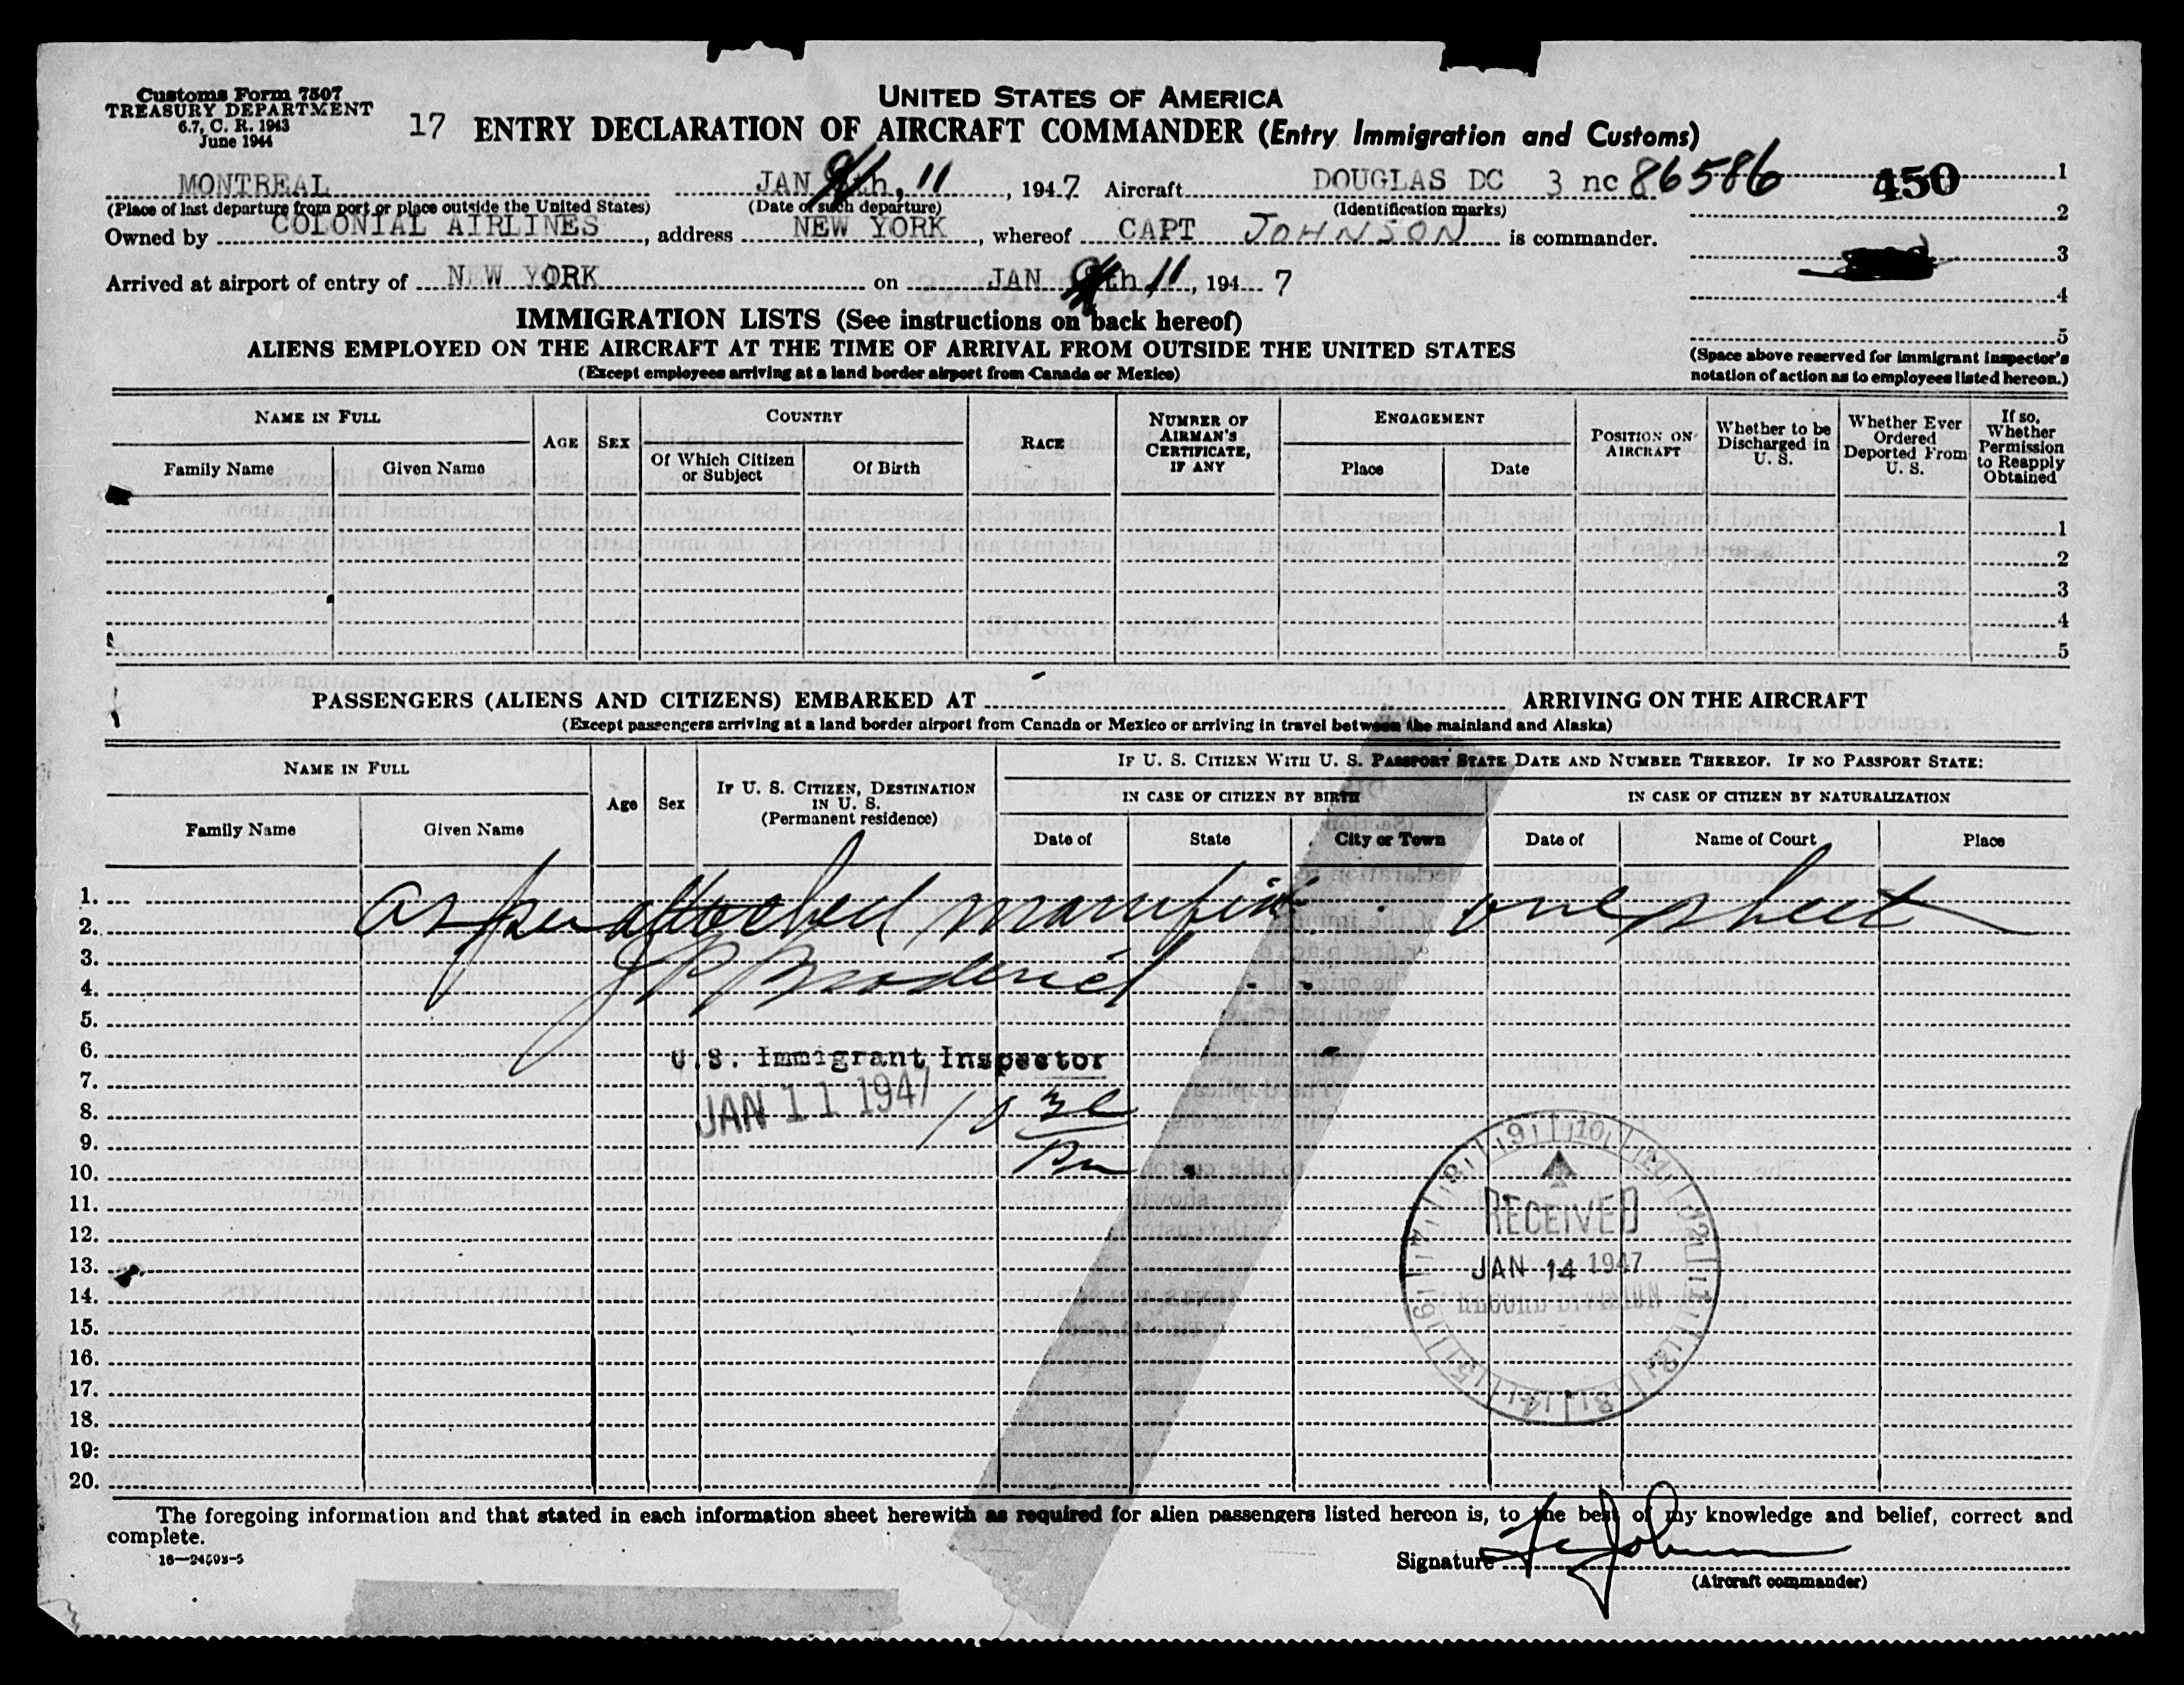 Customs Form 7507
TREASURY DEPARTMENT
6.7, C. R. 1943
June 1944
UNITED STATES OF AMERICA
17 ENTRY DECLARATION OF AIRCRAFT COMMANDER (Entry Immigration and Customs)
MONTREAL JAN 11, 1947 Aircraft DOUGLAS DC 3 nc 86586 450 1
(Place of last departure from port or place outside the United States) (Date of such departure) (Identification marks) 2
Owned by COLONIAL AIRLINES, address NEW YORK, whereof CAPT JOHNSON is commander.
3
Arrived at airport of entry of N W YORK on JAN 11, 1947
4
IMMIGRATION LISTS (See instructions on back hereof)
5
ALIENS EMPLOYED ON THE AIRCRAFT AT THE TIME OF ARRIVAL FROM OUTSIDE THE UNITED STATES
(Except employees arriving at a land border airport from Canada or Mexico)
(Space above reserved for immigrant inspector's
notation of action as to employees listed hereon.)
NAME IN FULL
Family Name Given Name
AGE SEX
COUNTRY
Of Which Citizen or Subject
Of Birth
RACE
NUMBER OF AIRMAN'S CERTIFICATE, IF ANY
ENGAGEMENT
Place Date
POSITION ON AIRCRAFT
Whether to be Discharged in U. S.
Whether Ever Ordered Deported From U. S.
If so, Whether Permission to Reapply Obtained
1
2
3
4
5
PASSENGERS (ALIENS AND CITIZENS) EMBARKED AT ARRIVING ON THE AIRCRAFT
(Except passengers arriving at a land border airport from Canada or Mexico or arriving in travel between the mainland and Alaska)
NAME IN FULL
Family Name Given Name
Age Sex
IF U. S. CITIZEN, DESTINATION IN U. S.
(Permanent residence)
IF U. S. CITIZEN WITH U. S. PASSPORT STATE DATE AND NUMBER THEREOF. IF NO PASSPORT STATE:
IN CASE OF CITIZEN BY BIRTH IN CASE OF CITIZEN BY NATURALIZATION
Date of State City or Town Date of Name of Court Place
1.
as per attached manifest one sheet
2.
3.
J P Broderick
4.
5.
6.
U.S. Immigrant Inspector
7.
JAN 11 1947 10 30
8.
9.
Pm
10.
11.
RECEIVED
12.
13.
JAN 14 1947
14.
RECORD DIVISION
15.
16.
17.
18.
19.
20.
The foregoing information and that stated in each information sheet herewith as required for alien passengers listed hereon is, to the best of my knowledge and belief, correct and
complete.
16—24598-5
Signature Johnson
(Aircraft commander)